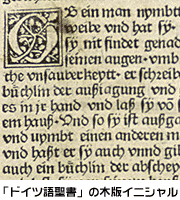 B ein man nymbtt
weibe vnd hat sy.
sy nit findet genad
seinen augen. vmb
the vnsauberkeytt. er schreibe
büchlin der außiagung vnd
es in jr hand vnd laß sy võ s
em hauß. Und so sy ist außga
vnd nymbt einen anderen m
vnd haßt er sy auch vnnd gibt
auch ein büchlin der abschey
「ドイツ語聖書」の木版イニシャル